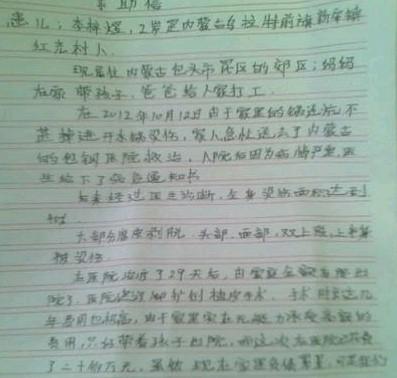 求助信
患儿：李梓煜，2岁 内蒙古乌拉特前旗新安镇
红光村人
现居住内蒙古包头市 区的郊区；妈妈
在家带孩子，爸爸给人家打工
在2012年10月12日由于家里的锅连炕不
慎掉进开水锅烫伤，家人急忙送去了内蒙古
的包钢医院救治，入院后因为病情严重，医
生给下了病危通知书
后来经过医生诊断，全身烫伤面积达到
大部分表皮剥脱，头部、面部，双上肢，上
被烫伤
在医院治疗了29天后，由
院 植皮手术，手术
费用也很高，由于家里实在无能力承受高额的
费用，只好带着孩子出院，而这次在医院已花费
了二十 万元，虽然现在家里负债累累，可是我们